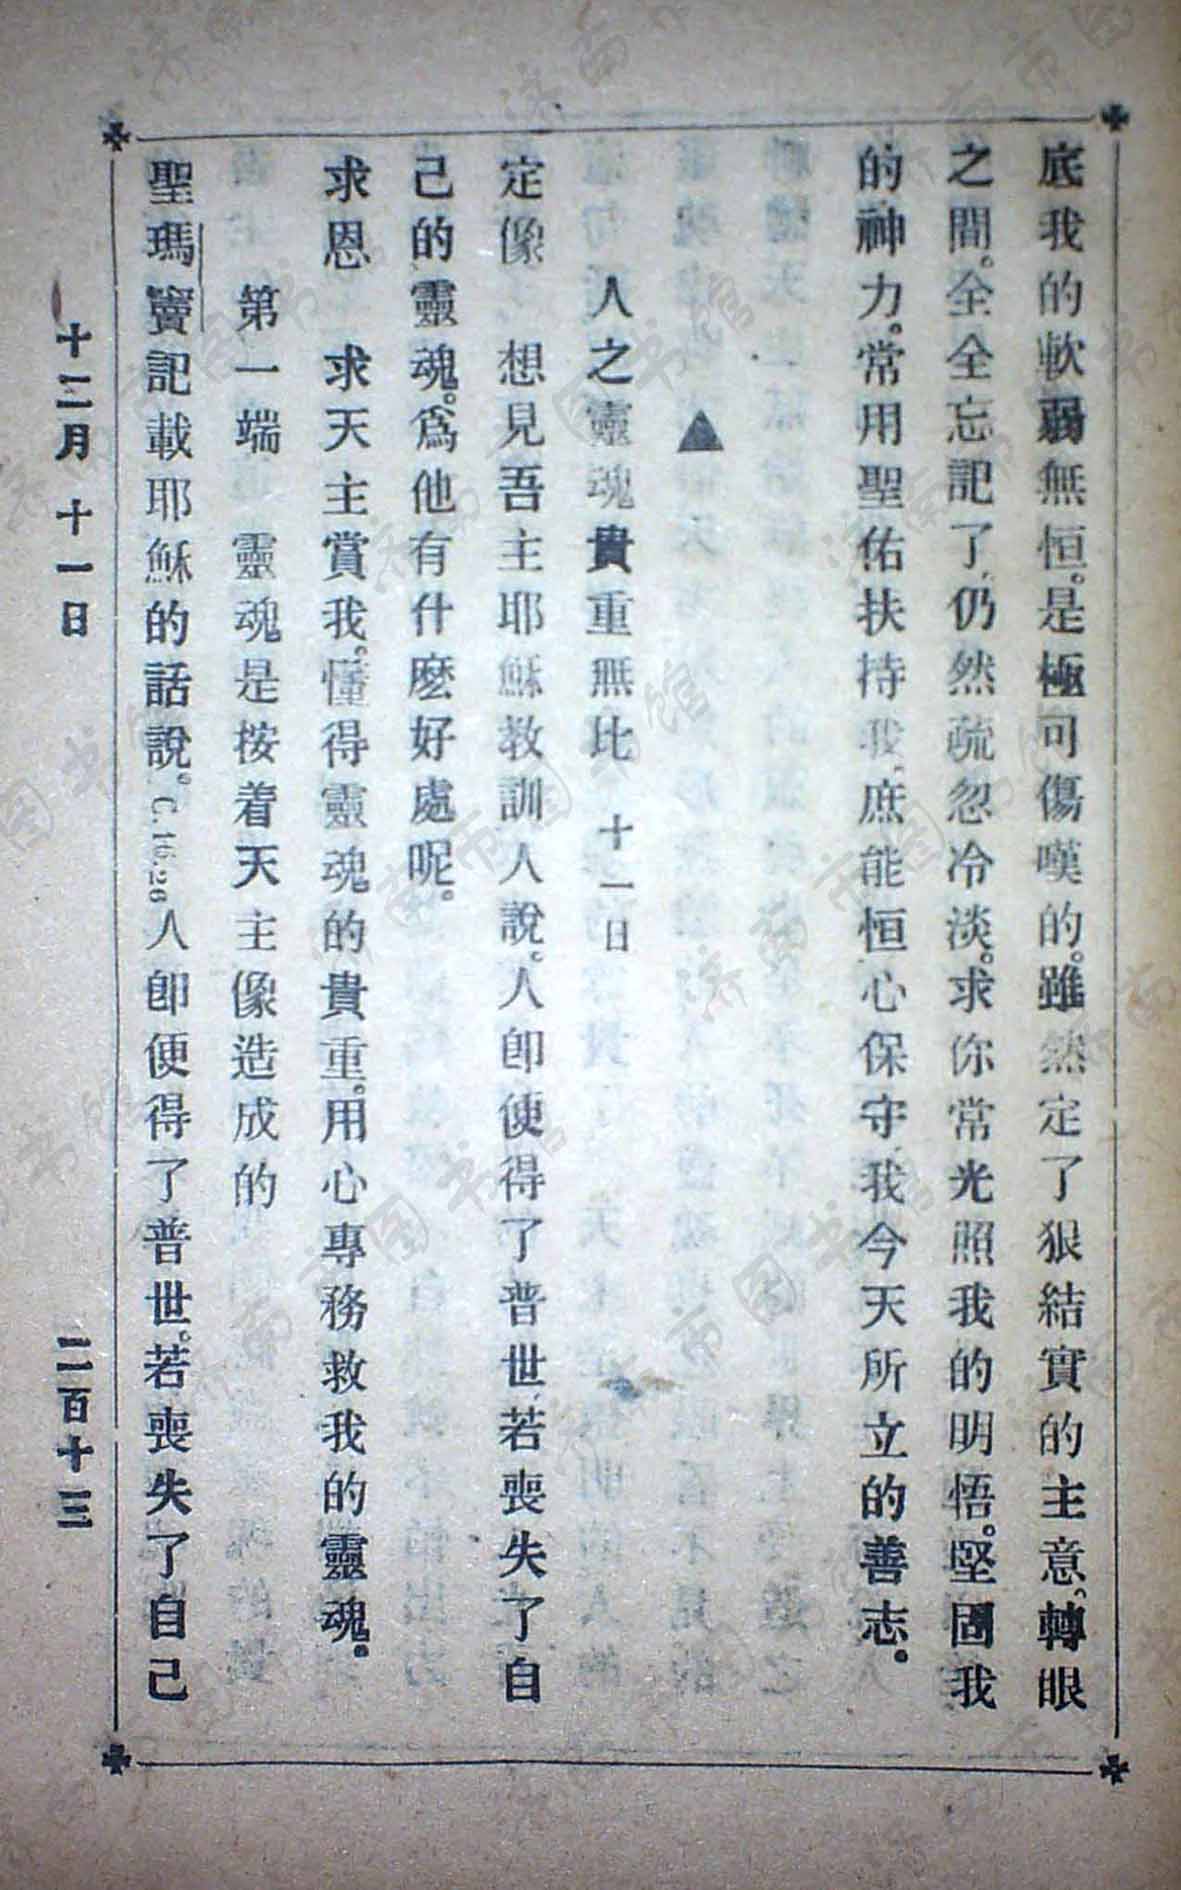 底我的軟弱無恒。是極可傷嘆的。雖然定了狠結實的主意。轉眼
之間。全全忘記了、仍然疏忽冷淡。求你常光照我的明悟。堅固我
的神力。常用聖佑扶持我、庶能恒心保守、我今天所立的善志。
▲
人之靈魂貴重無比 十一日
定像 想見吾主耶穌教訓人說。人卽便得了普世、若喪失了自
己的靈魂。爲他有什麽好處呢。
求恩 求天主賞我。懂得靈魂的貴重。用心專務救我的靈魂。
第一端 靈魂是按着天主像造成的
聖瑪竇記載耶穌的話說。C. 16. 26 人卽便得了普世。若喪失了自己
十二月 十一日 二百十三